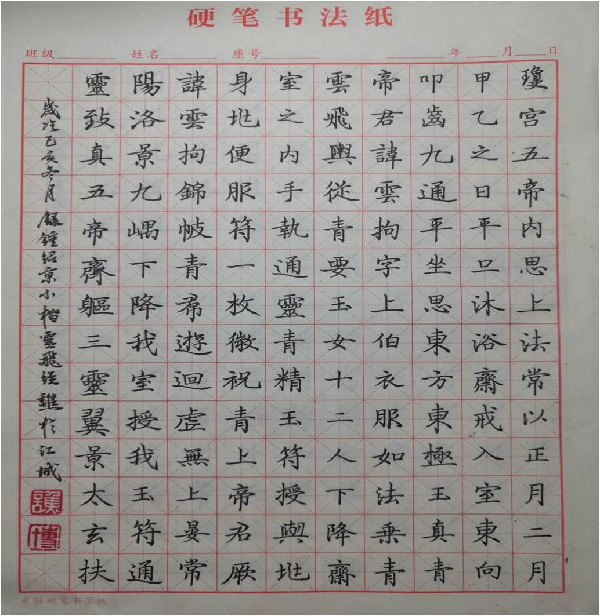 硬笔书法纸
班级 姓名 座号 年 月 日
瓊宫五帝内思上法常以正月二月
甲乙之日平旦沐浴齋戒入室東向
叩齒九通平坐思東方東極玉真青
帝君諱雲拘字上伯衣服如法乘青
雲飛輿從青要玉女十二人下降齋
室之内手執通靈青精玉符授與兆
身兆便服符一枚微祝青上帝君厥
諱雲拘錦帔青帬遊迴虛無上晏常
陽洛景九嵎下降我室授我玉符通
靈致真五帝齊軀三靈翼景太玄扶
歲次己亥冬月錄鍾紹京小楷靈飛經譙於江城
硬笔书法纸